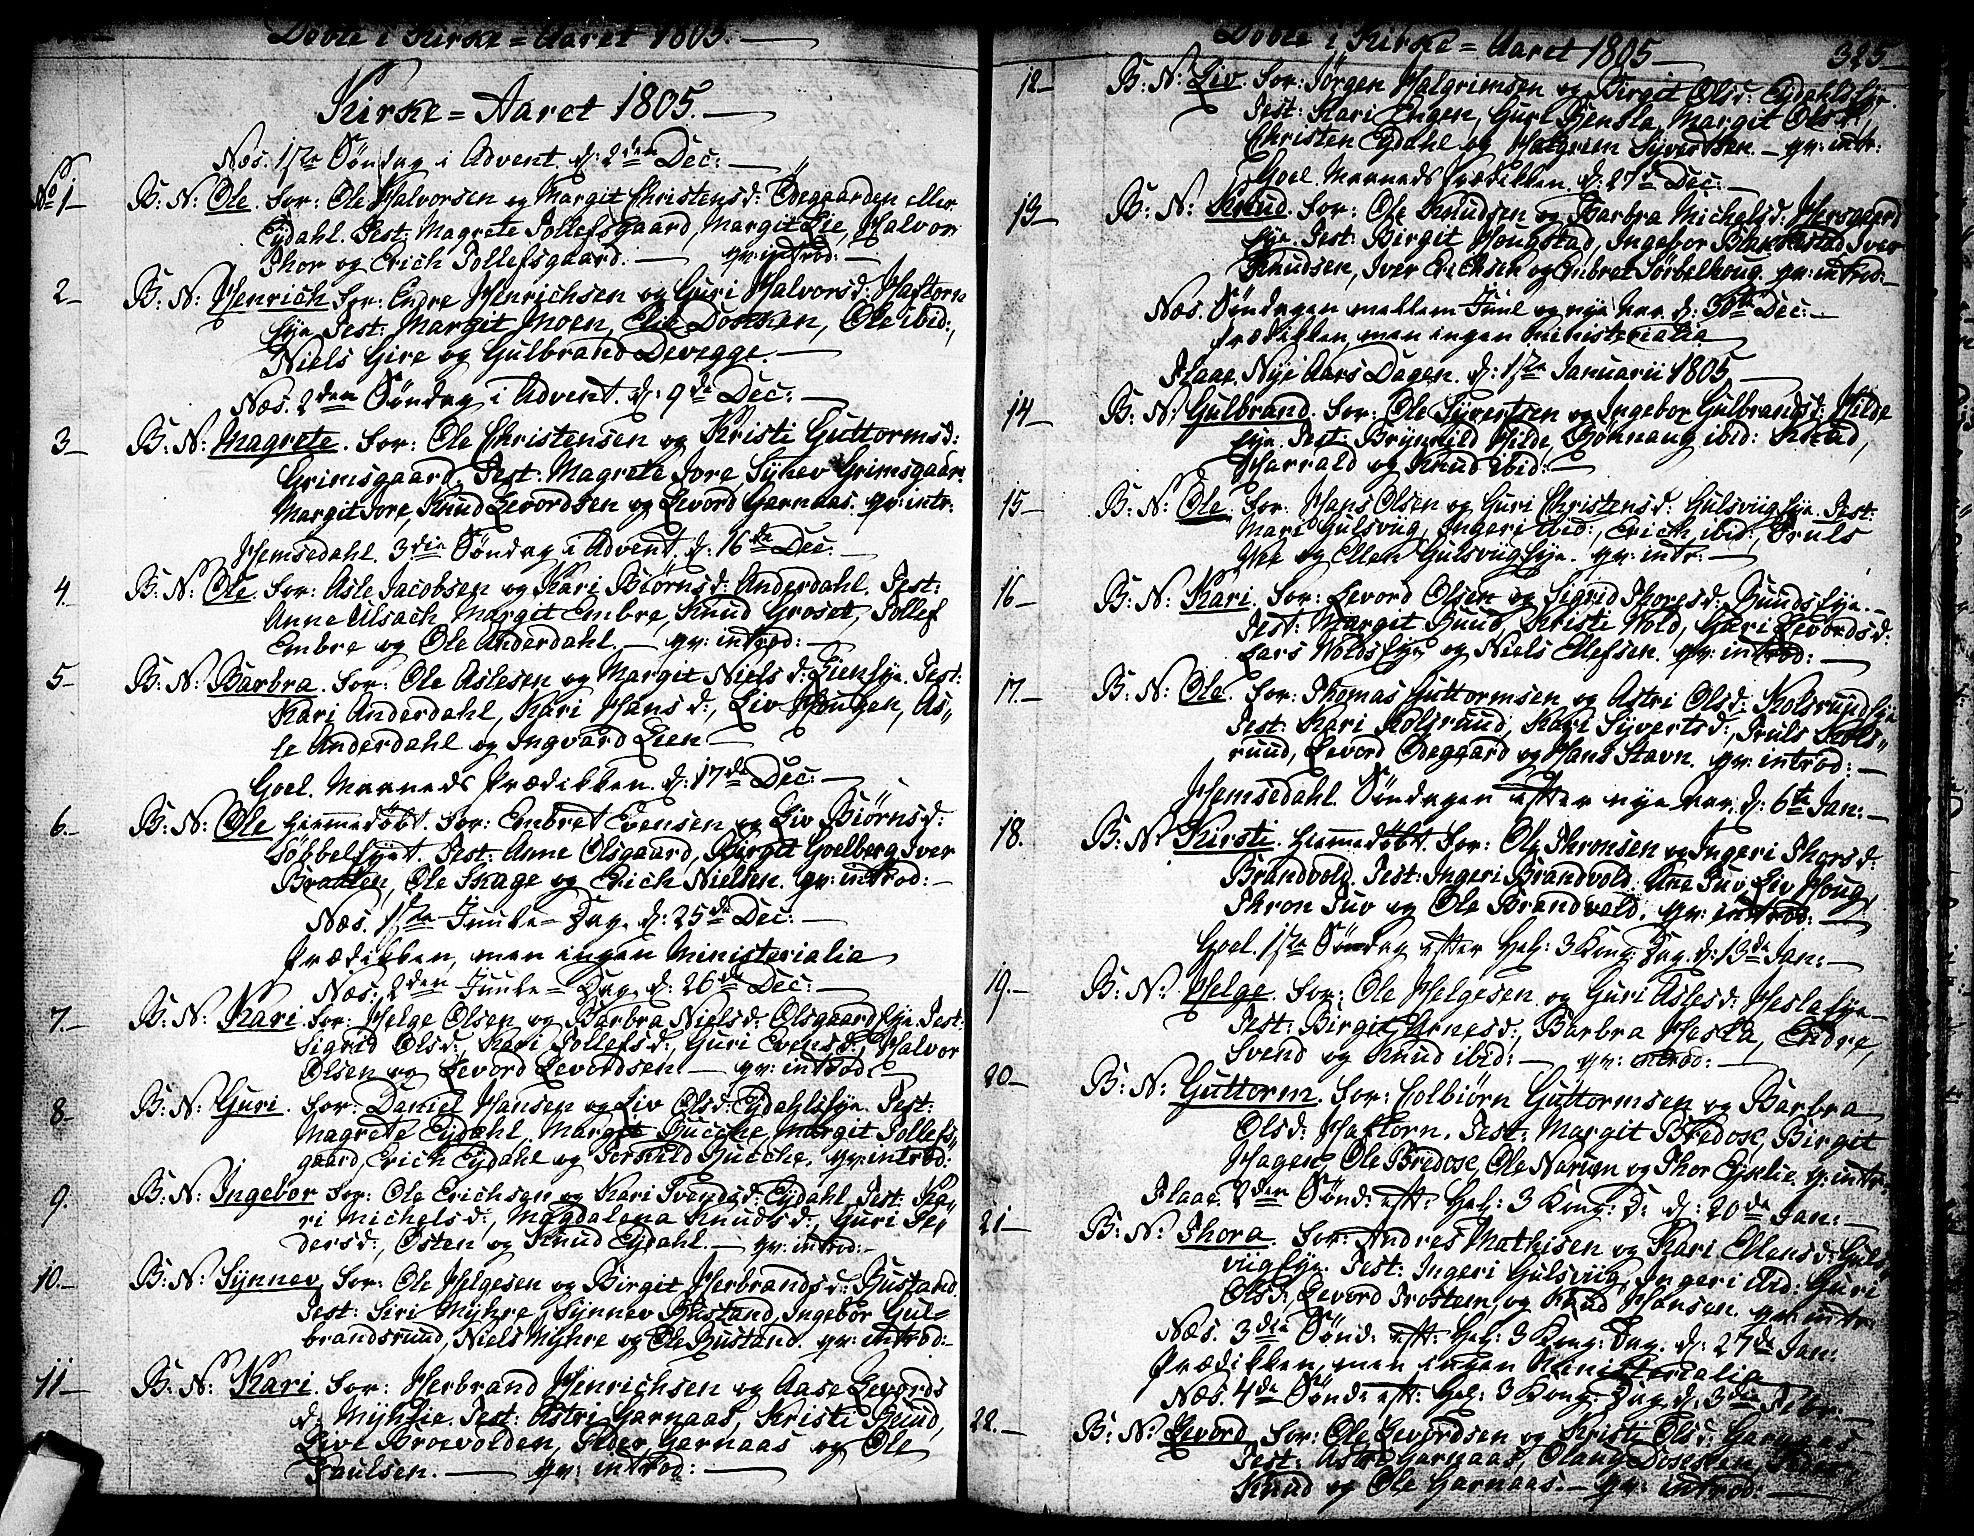 Døbte i Kirke=Aaret 1805.
Kirke=Aaret 1805.
Næs. 1ste Søndag i Advent d: 2den Dec:
No 1 B: N: Ole. For: Ole Halvorsen og Margit Christensd: Ødegaarden eller
Eydahl. Test: Magrete Tollefsgaard, Margit Lie, Halvor
Thor og Erich Tollefsgaard. — qv: introd:
2 B: N: Henrich For: Endre Henrichsen og Guri Halvorsd: Haftorn
eye. Test: Margit Moen, Elie Doseken, Ole ibid:,
Niels Gire og Gulbrand Devegge.
Næs. 2den Søndag i Advent. d: 9de Dec:
3 B: N: Magrete. For: Ole Christensen og Kristi Guttormsd:
Grimsgaard. Test: Magrete Jore, Synev Grimsgaar
Margit Jore, Knud Levordsen og Levord Garnaas. qv: intr:
Hemsedahl. 3die Søndag i Advent. d: 16de Dec.
4. B: N: Ole. For: Asle Jacobsen og Kari Biørnsd: Anderdahl. Test:
Anne Ulsach, Margit Embre, Knud Groset, Tollef
Embre og Ole Anderdahl. — qv: introd:
5 B: N: Barbra. For: Ole Aslesen og Margit Nielsd: Lieneye. Test:
Kari Anderdahl, Kari Hansd:, Liv Hougen, As„
le Anderdahl og Ingvard Lien
Goel. Maaneds Prædikken. d: 17de Dec:
6. B: N: Ole hiemmedøbt. For: Embret Evensen og Liv Biørnsd:
Søbbeleyet. Test: Anne Olsgaard, Birgit Goelberg Iver
Braaten, Ole Skage og Erich Nielsen. qv: introd:
Næs. 1ste Juule=Dag. d: 25de Dec:
Prædikken, men ingen Ministerialia
Næs. 2den Juule=Dag. d: 26de Dec:
7. B: N: Kari. For: Helge Olsen og Barbra Nielsd: Olsgaardeye. Test:
Sigrid Olsd:, Kari Tollefsd:, Guri Evensd:, Halvor
Olsen og Levord Levordsen — qv: introd:
8. B: N: Guri. For: Daniel Hansen og Liv Olsd: Eydahlseye. Test:
Magrete Eydahl, Margit Hucche, Margit Tollefs„
gaard, Erich Eydahl og Torkild Hucche. qv: introd:
9. B: N: Ingebor For: Ole Erichsen og Kari Svendsd: Eydahl. Test: Ka„
ri Michelsd:, Magdalena Knudsd:, Guri Pe„
dersd:, Østen og Knud Eydahl. — qv: introd:
10. B: N: Synnev. For: Ole Helgesen og Birgit Herbrandsd: Bustand.
Test: Siri Myhre, Synnev Bustand, Ingebor Gul=
brandsruud, Niels Myhre og Ole Bustand. qv: introd:
11 B: N: Kari. For: Herbrand Henrichsen og Aase Levords
d: Myhreie. Test: Astri Garnaas, Kristi Bruud,
Live Broevolden, Peder Garnaas og Ole
Paulsen. — qv: introd:
Døbte i Kirke=Aaret 1805 325
12 B: N: Liv. For: Jørgen Halgrimsen og Birgit Olsd: Eydahlseye.
Test: Kari Engen, Guri Bensla, Margit Olsd:,
Christen Eydahl og Halgrim Syvertsen. — qv: intr:
Goel. Maaneds Prædikken. d: 27de Dec:
13 B: N: Knud. For: Ole Knudsen og Barbra Michelsd: Hersgaard
eye. Test: Birgit Hougstad, Ingebor Blakkestad, Iver
Knudsen, Iver Erichsen og Embret Sørbelhoug. qv: introd:
Næs. Søndagen mellem Juul og nye Aar d: 30te Dec:
Prædikken, men ingen ministerialia
Flaae. Nye Aars Dagen. d: 1ste Januarii 1805
14 B: N: Gulbrand. For: Ole Syvertsen og Ingebor Gulbrandsd: Hilde
eye. Test: Brynild Hilde, Gønnaug ibid: Knud,
Harrald og Knud ibid:
15 B: N: Ole. For: Hans Olsen og Guri Christensd: Gulsviigeye. Test:
Mari Gulsviig, Ingeri ibid:, Erich ibid:, Truls
Wee og Ellen Gulsviigeye. qv: intr:
16 B: N: Kari. For: Levord Olsen og Sigrid Thoresd: Gundseye.
Test: Margit Guud, Kristi Wold, Guri Levordsd:
Lars Woldseye og Niels Ellefsen. qv: introd:
17. B: N: Ole. For: Thomas Guttormsen og Astri Olsd: Kolsruudeye
Test: Kari Kolsruud, Kari Syvertsd:, Truls Kols„
ruud, Levord Ødegaard og Hans Stavn. qv: introd:
Hemsedahl. Søndagen efter nye Aar. d: 6te Jan:
18. B: N: Kirsti. hiemmedøbt For: Ole Thronsen og Ingeri Thorsd:
Brandvold. Test: Ingeri Brandvold. Ane Tuv, Liv Houg,
Thron Tuv og Ole Brandvold. qv: introd:
Goel. 1ste Søndag efter Hel: 3 Kong: Dag. d: 13de Jan:
19. B: N: Helge. For: Ole Helgesen og Guri Aslesd: Heslaeye
Test: Birgit Arnesd:, Barbra Hesla, Endre,
Svend og Knud ibid: — qv: introd:
20 B: N: Guttorm. For: Colbiørn Guttormsen og Barbra
Olsd: Haftorn. Test: Margit Bredose, Birgit
Hagen, Ole Bredose, Ole Narum og Thor Eyklie. qv: intr:
Flaae. 2den Sønd: eft: Hel: 3 Kong: D: d: 20de Jan:
21 B: N: Thora. For: Andres Mathisen og Kari Ellensd: Guls„
viigeye. Test: Ingeri Gulsviig, Ingeri ibid: Guri
Olsd: Levord Trostem, og Knud Hansen. qv: intr:
Næs. 3die Sønd: eft: Hel: 3 Kong: Dag. d: 27de Jan:
Prædikken, men ingen Ministerialia
Næs. 4de Sønd: eft: Hel: 3 Kong: Dag. d: 3die Febr:
22. B: N: Levord. For: Ole Levordsen og Kristi Olsd: Garnaas
Test: Astri Garnaas, Olaug Doseken, Peder
Knud og Ole Garnaas. — qv: introd: